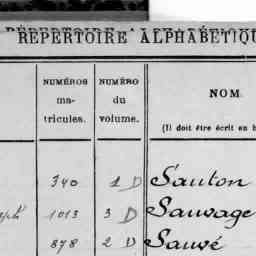 RÉPERTOIRE ALPHABÉTIQU
NUMÉROS matricules. NUMÉRO du volume. NOM
(Il doit être écrit en b
340 1 D Sauton
1013 3 D Sauvage
878 2 D Sauvé